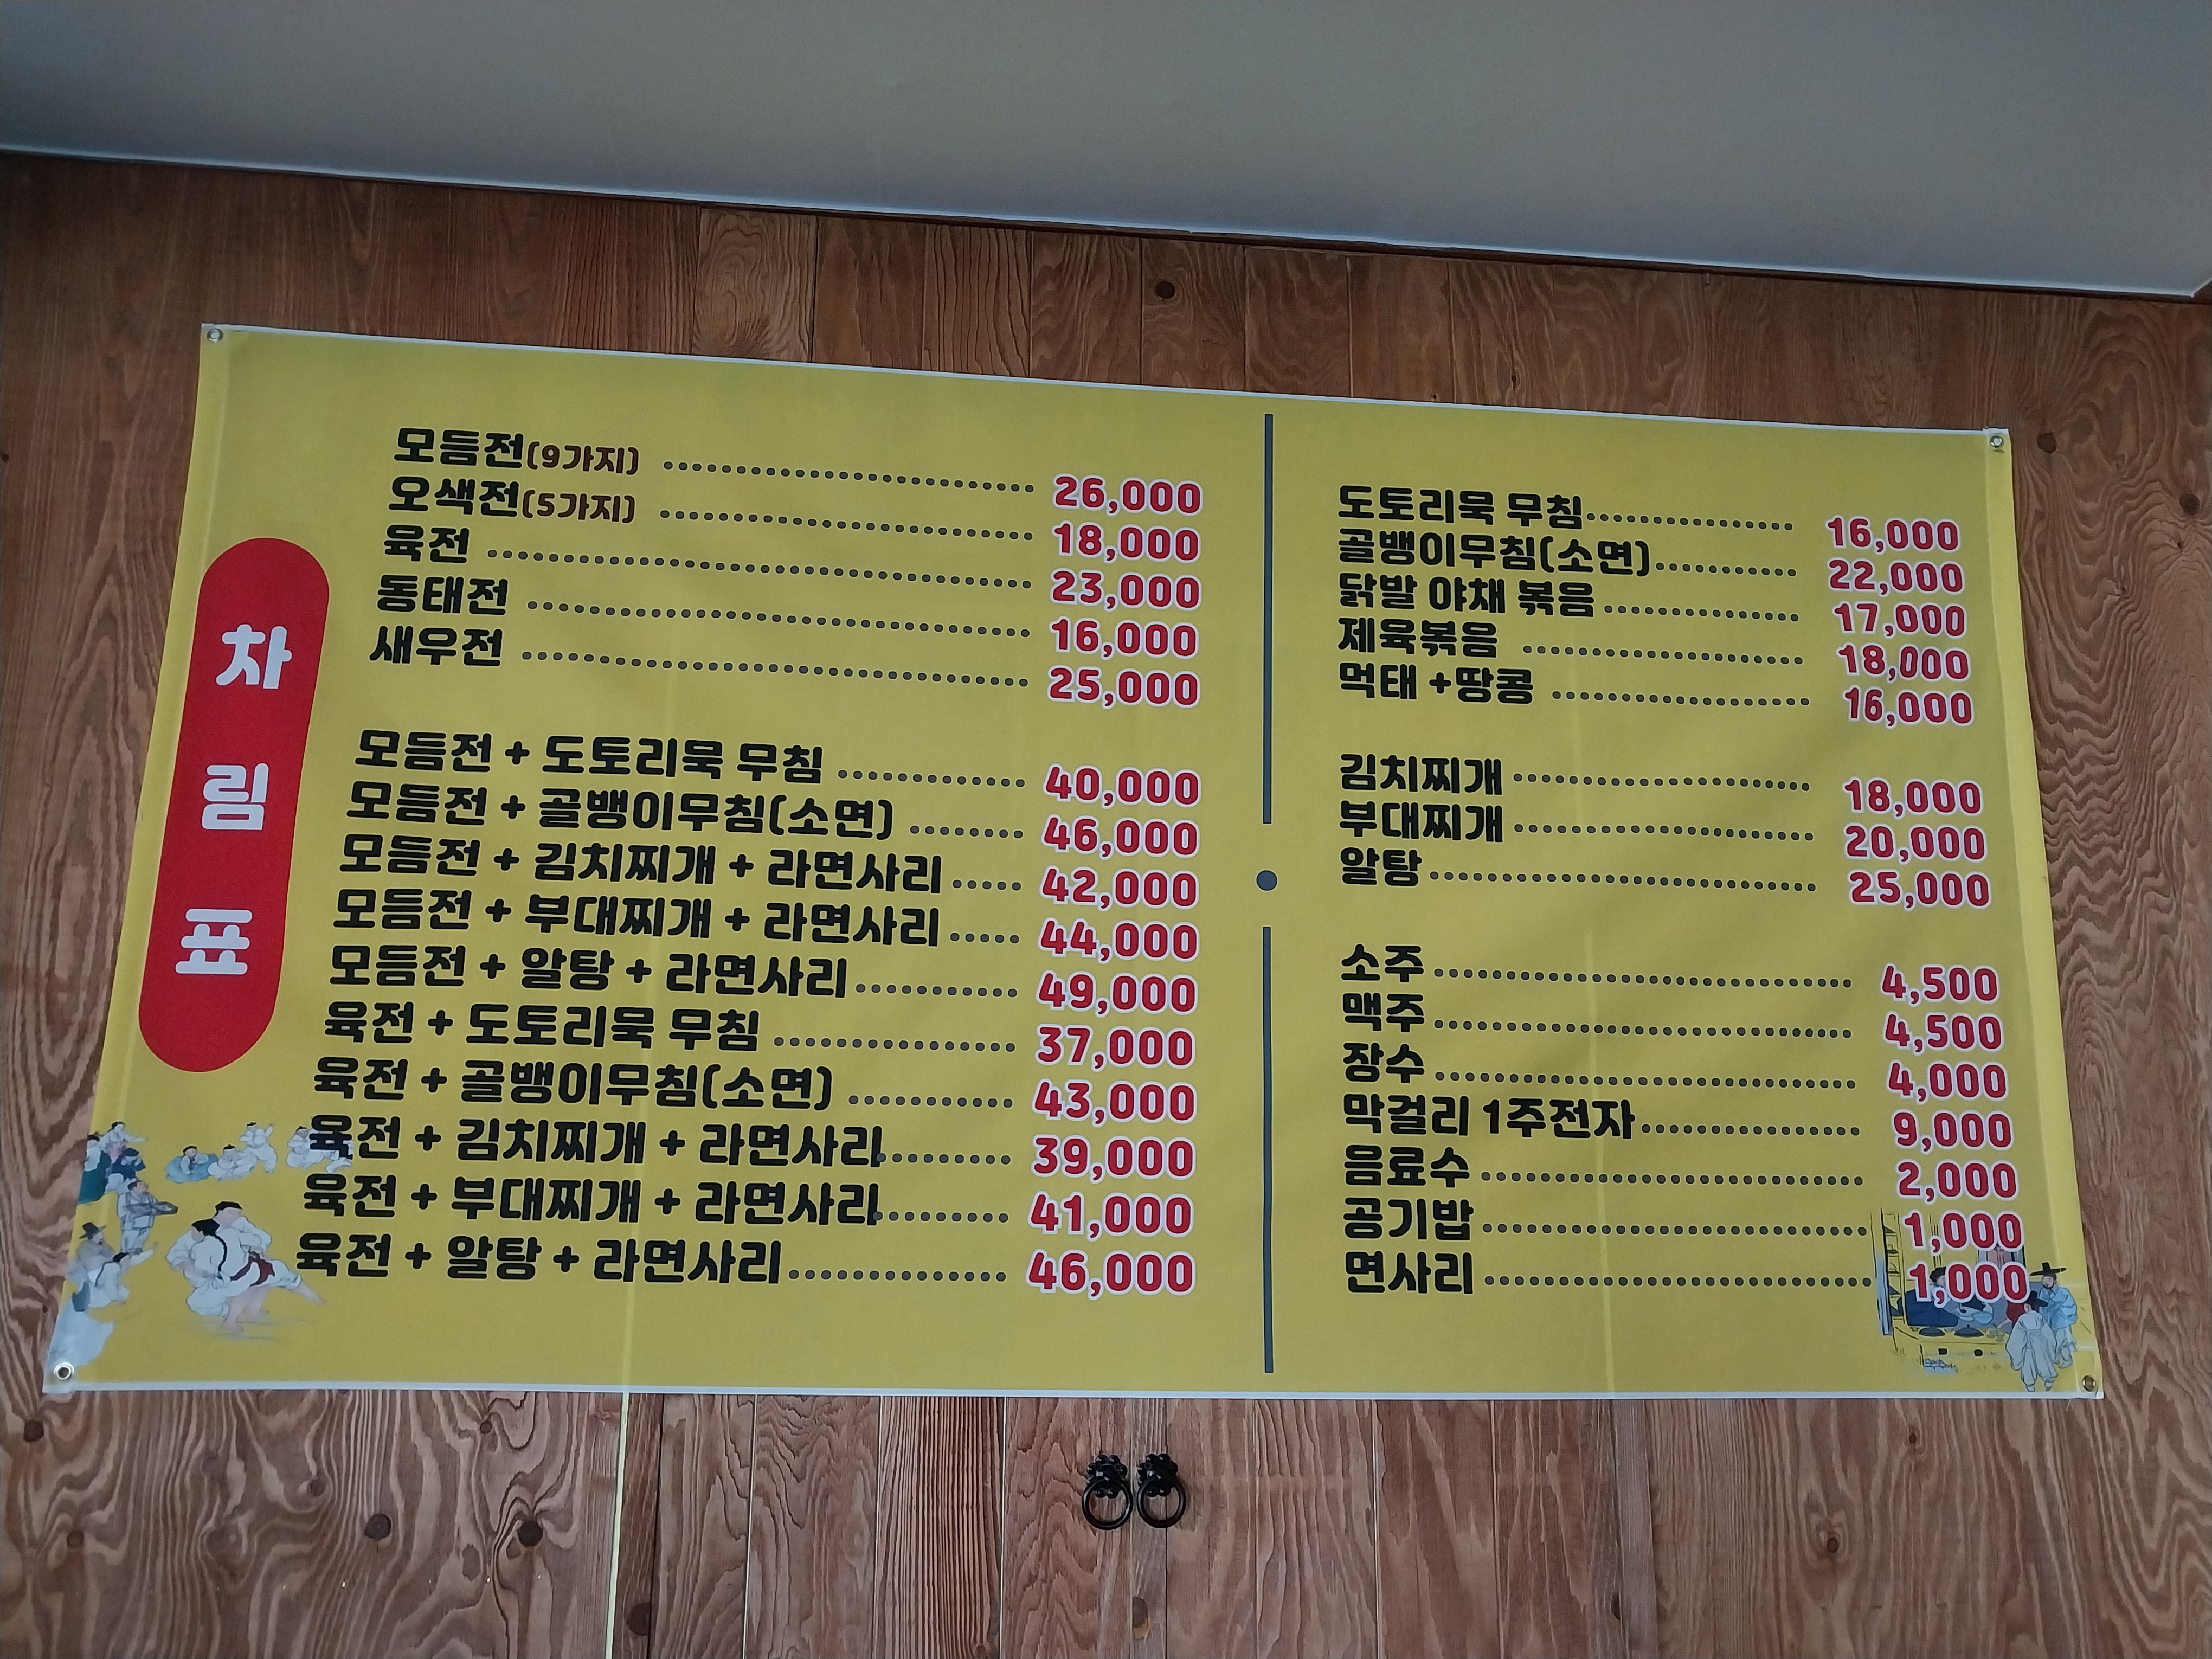 차림표
모듬전(9가지) 26,000
오색전(5가지) 18,000
육전 23,000
동태전 16,000
새우전 25,000
모듬전 + 도토리묵 무침 40,000
모듬전 + 골뱅이무침(소면) 46,000
모듬전 + 김치찌개 + 라면사리 42,000
모듬전 + 부대찌개 + 라면사리 44,000
모듬전 + 알탕 + 라면사리 49,000
육전 + 도토리묵 무침 37,000
육전 + 골뱅이무침(소면) 43,000
육전 + 김치찌개 + 라면사리 39,000
육전 + 부대찌개 + 라면사리 41,000
육전 + 알탕 + 라면사리 46,000
도토리묵 무침 16,000
골뱅이무침(소면) 22,000
닭발 야채 볶음 17,000
제육볶음 18,000
먹태 +땅콩 16,000
김치찌개 18,000
부대찌개 20,000
알탕 25,000
소주 4,500
맥주 4,500
장수 4,000
막걸리 1주전자 9,000
음료수 2,000
공기밥 1,000
면사리 1,000